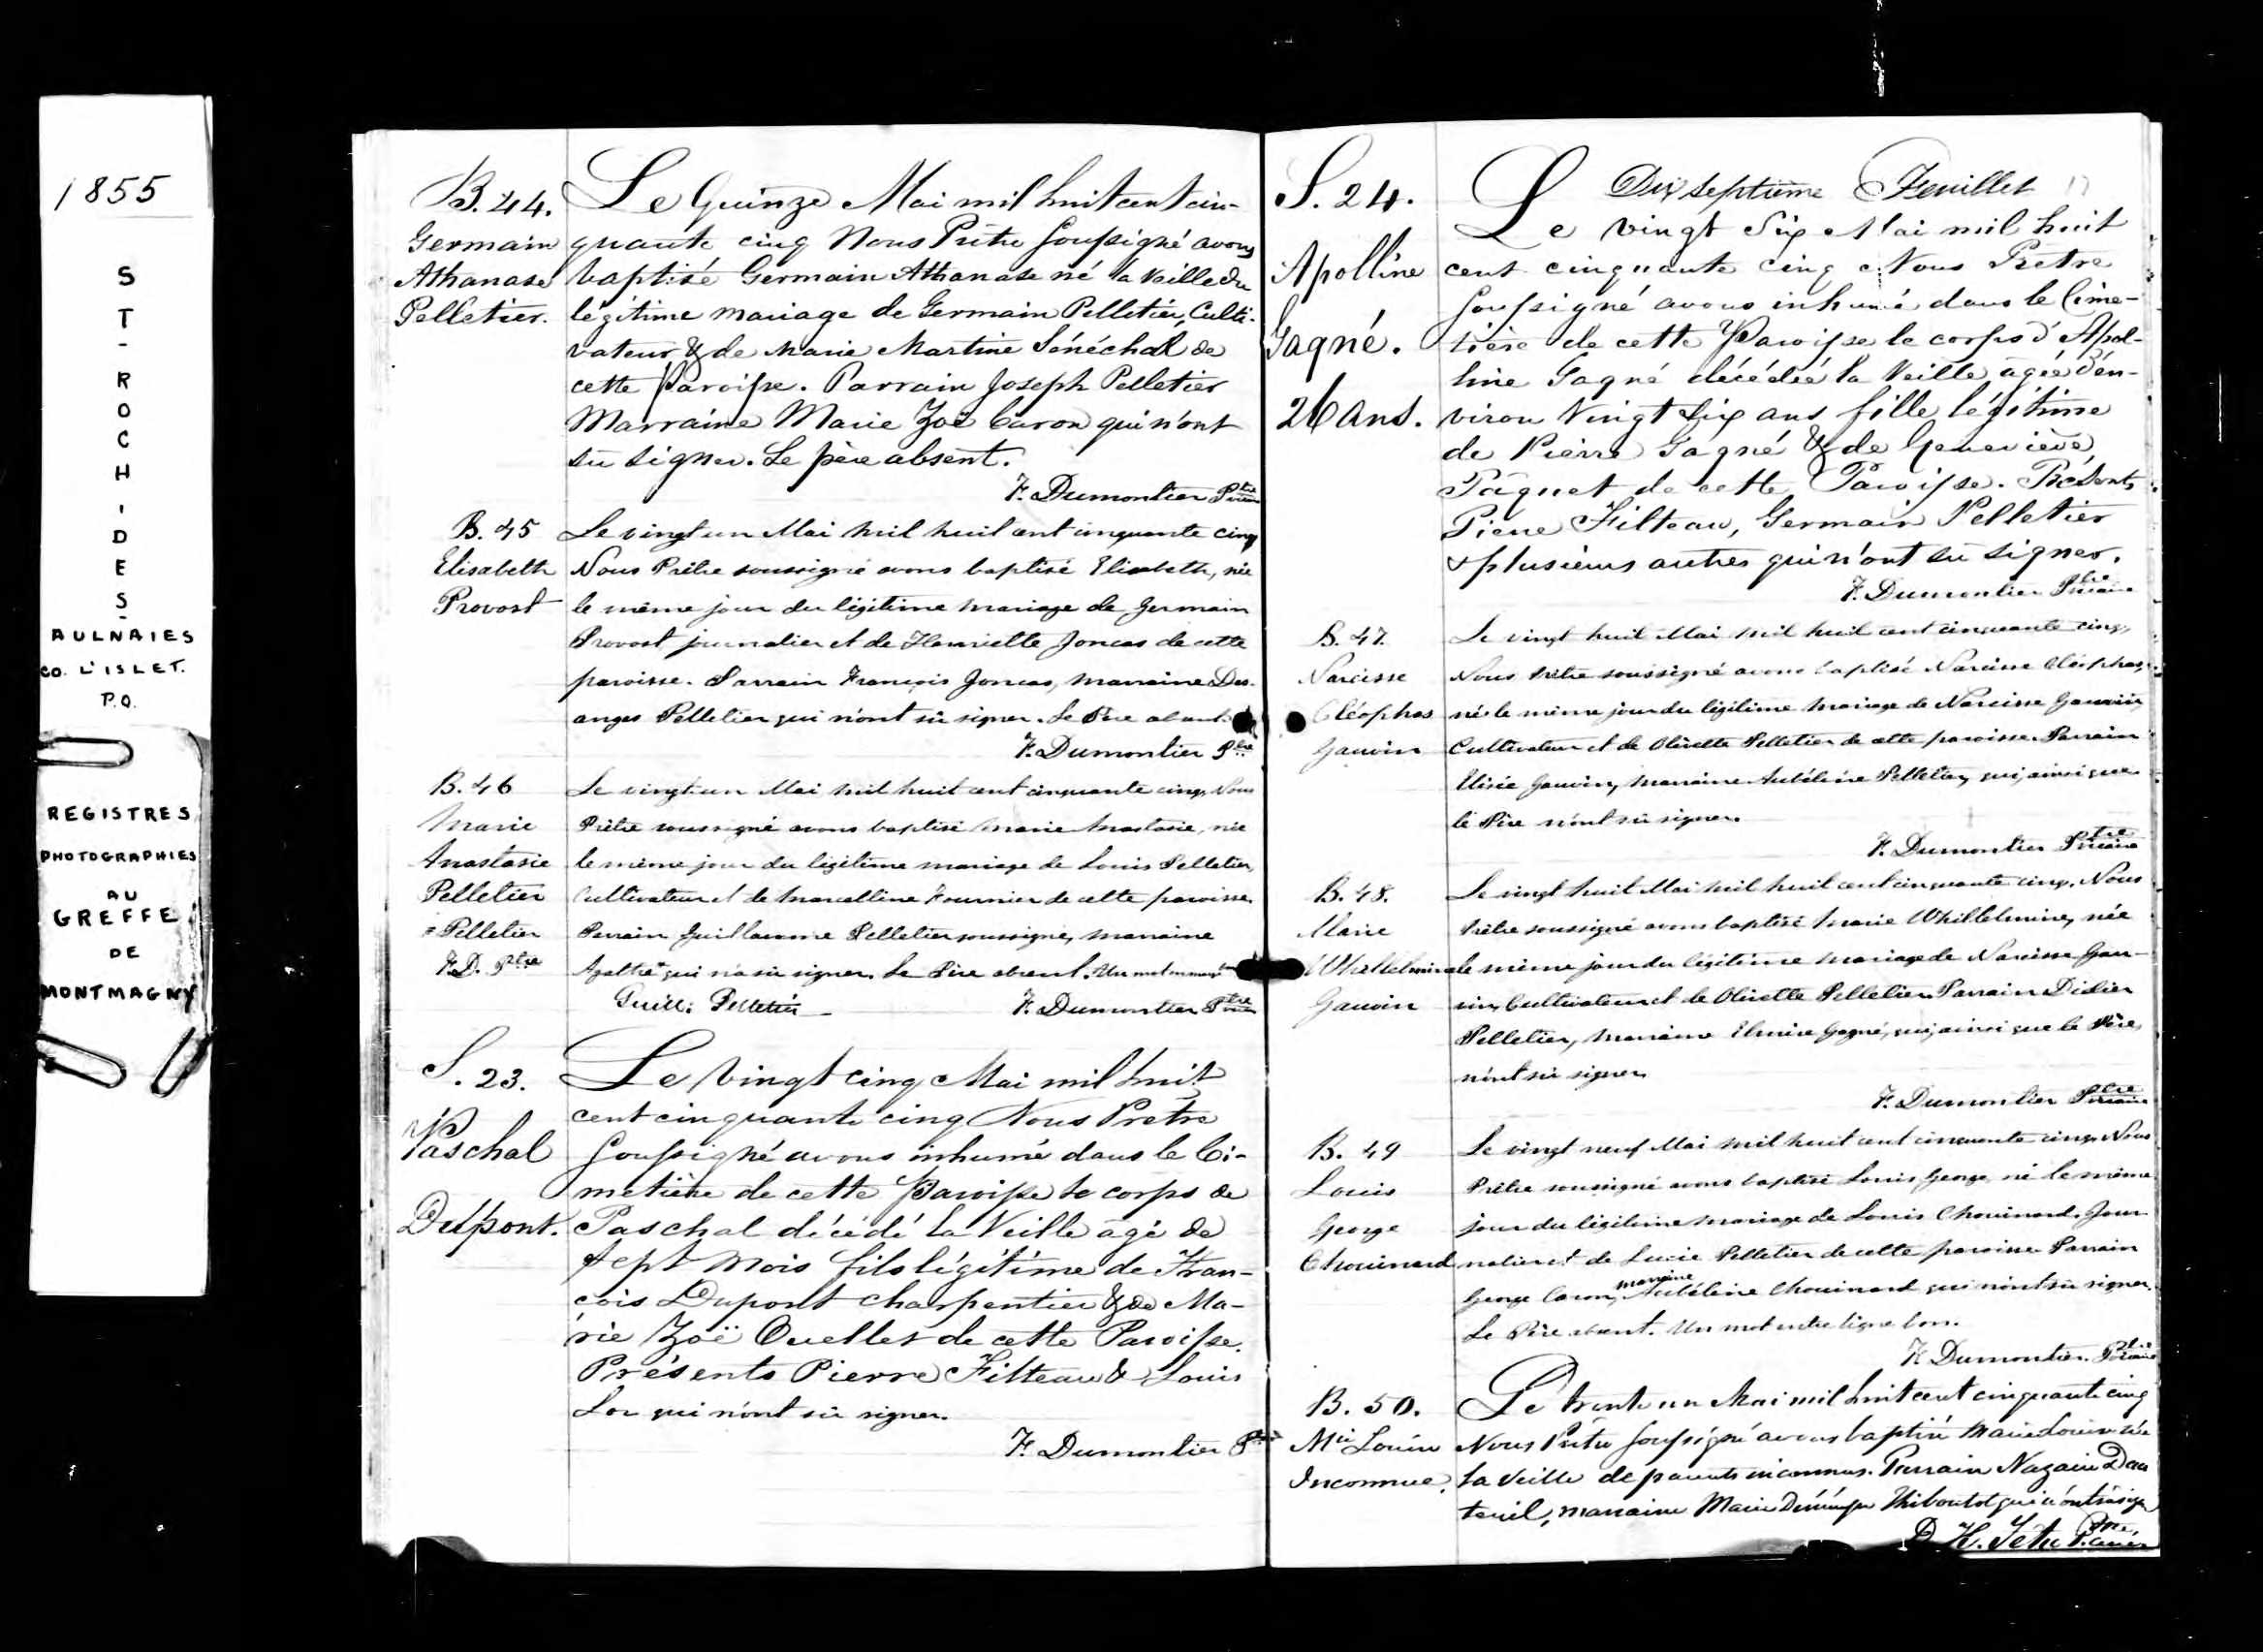 1855
ST-ROCH-DES-
AULNAIES
CO. L'ISLET.
P.Q.
REGISTRES
PHOTOGRAPHIES
AU
GREFFE
DE
MONTMAGNY
B. 44.
Germain
Athanase
Pelletier.
Le Quinze Mai mil huit cent cin-
quante cinq Nous Prêtre Soussigné avons
baptisé Germain Athanase né la veille du
légitime mariage de Germain Pelletier, Culti-
vateur & de Marie Martine Sénéchal de
cette Paroisse. Parrain Joseph Pelletier
Marraine Marie Zoé Caron qui n'ont
su signer. Le père absent.
F. Dumontier Ptre
B. 45
Elisabeth
Provost
Le vingt un Mai mil huit cent cinquante cinq
Nous Prêtre soussigné avons baptisé Elisabeth, née
le même jour du légitime mariage de Germain
Provost journalier et de Henriette Joncas de cette
paroisse. Parrain François Joncas, marraine Des-
anges Pelletier qui n'ont sû signer. Le Père absent.
F. Dumontier Ptre
B. 46
Marie
Anastasie
Pelletier
Pelletier
F.D. Ptre
Le vingt un Mai mil huit cent cinquante cinq, Nous
Prêtre soussigné avons baptisé Marie Anastasie, née
le même jour du légitime mariage de Louis Pelletier,
Cultivateur et de Marcelline Fournier de cette paroisse.
Parrain Guillaume Pelletier soussigné, marraine
Agathe qui n'a sû signer. Le Père absent. Un mot en marge
Guill: Pelletier
F. Dumontier Ptre
S. 23.
Paschal
Dupont.
Le Vingt cinq Mai mil huit
cent cinquante cinq Nous Prêtre
Soussigné avons inhumé dans le Ci-
metière de cette Paroisse le corps de
Paschal décédé la Veille agé de
sept mois fils légitime de Fran-
çois Dupont charpentier & de Ma-
rie Zoë Ouellet de cette Paroisse.
Présents Pierre Filteau & Louis
qui n'ont sû signer.
F. Dumontier Ptre
Dix septième Feuillet 17
S. 24.
Apolline
Gagné.
26 Ans.
Le vingt Six Mai mil huit
cent cinquante cinq Nous Prêtre
Soussigné avons inhumé dans le Cime-
tière de cette Paroisse le corps d'Apol-
line Gagné décédée la Veille agée d'en-
viron Vingt Six ans fille légitime
de Pierre Gagné & de Geneviève
Pâquet de cette Paroisse. Présents
Pierre Filteau, Germain Pelletier
& plusieurs autres qui n'ont su signer.
F. Dumontier Ptre Vicaire
B. 47.
Narcisse
Cléophas
Gauvin
Le vingt huit Mai mil huit cent cinquante cinq,
Nous Prêtre soussigné avons baptisé Narcisse Cléophas,
né le même jour du légitime mariage de Narcisse Gauvin,
Cultivateur et de Olivette Pelletier de cette paroisse. Parrain
Elisée Gauvin, marraine Pelletier, qui, ainsi que
le Père n'ont sû signer.
F. Dumontier Ptre Vicaire
B. 48.
Marie
Whillelmine
Gauvin
Le vingt huit Mai mil huit cent cinquante cinq, Nous
Prêtre soussigné avons baptisé Marie Whillelmine, née
le même jour du légitime mariage de Narcisse Gau-
vin, Cultivateur et de Olivette Pelletier. Parrain Didier
Pelletier, marraine Elmire Gagné, qui, ainsi que le Père,
n'ont sû signer.
F. Dumontier Ptre Vicaire
B. 49
Louis
George
Chouinard
Le vingt neuf Mai mil huit cent cinquante cinq, Nous
Prêtre soussigné avons baptisé Louis George, né le même
jour du légitime mariage de Louis Chouinard, Jour-
nalier et de Lucie Pelletier de cette paroisse. Parrain
George Caron, marraine Chouinard qui n'ont sû signer.
Le Père absent. Un mot entre ligne bon.
F. Dumontier Ptre Vicaire
B. 50.
Mie Louise
Inconnue.
Le trente un Mai mil huit cent cinquante cinq
Nous Prêtre Soussigné avons baptisé Marie Louise née
la Veille de parents inconnus. Parrain Nazaire Dau
teuil, marraine Marie Thiboutot qui n'ont su signer
D. H. Têtu Ptre.